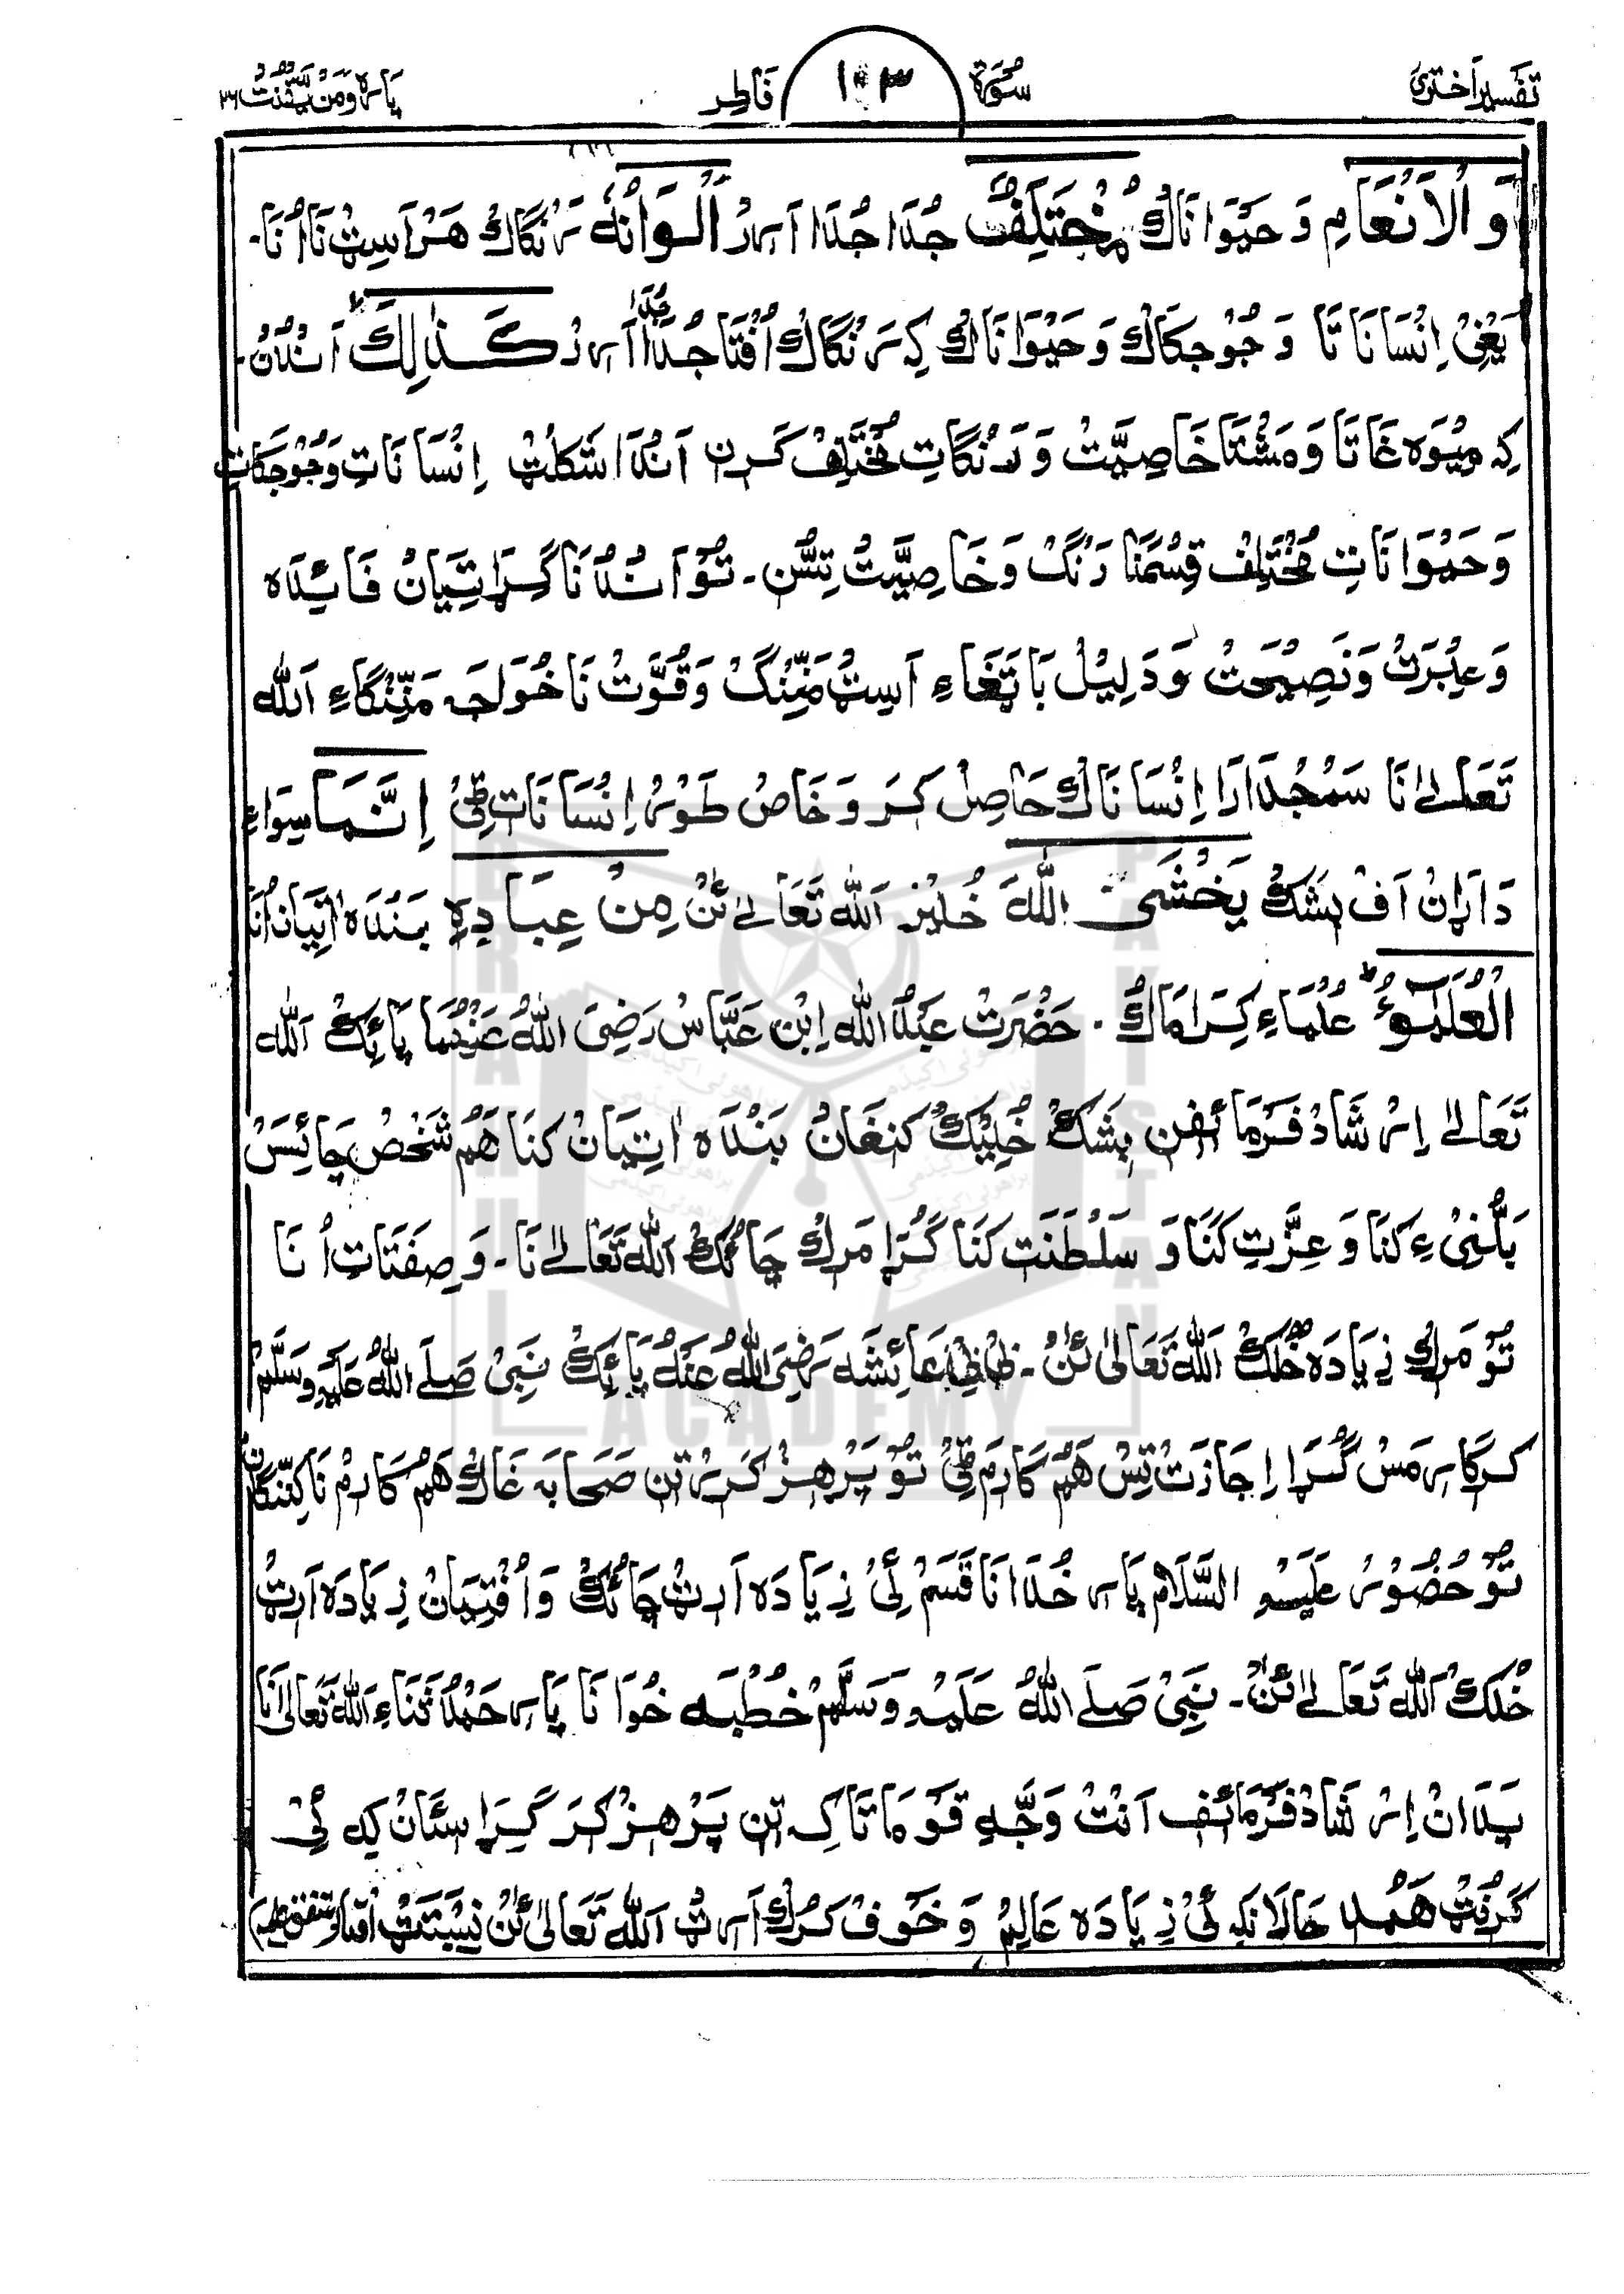 تفسیر اختری
سُورَة ۱۰۳ فَاطِر
پاره وَمَنْ يَّقْنُتْ ۲۲
وَالْاَنْعَامِ وَ حَیْوَانَاکْ مُخْتَلِفٌ جُدَا جُدَا اَرِیرْ اَلْوَانُهٗ رَنْگَاکْ هَرْ اَسِیٹْ نَا اُنَا۔
یَعْنِیْ اِنْسَانَا تَا وَ جُوْجَکَاکْ وَ حَیْوَانَاکْ کِه رَنْگَاکْ اُفْتَا جُدَا جُدَا اَرِیرْ کَذٰلِكَ اَنْدُنْ
کِه مِیْوَه غَاتَا وَ مَشْتَا خَاصِیَّتْ وَ رَنْگَاتِ مُخْتَلِفْ کَرِن اَنْدَا شَکْلَٹْ اِنْسَانَاتِ وَ جُوْجَکَاتِ
وَ حَیْوَانَاتِ مُخْتَلِفْ قِسْمَنَا رَنْگْ وَ خَاصِیَّتْ تِسُّن۔ تُوْ اَنْدُنَا گِرَاتِیَانْ فَائِدَه
وَ عِبْرَتْ وَ نَصِیْحَتْ وَ دَلِیْلْ بَاتَغَاءِ اَسِٹْ مَنِّنْگْ وَ قُوَّتْ نَا خُوَاجَه مَنِّنْگَاءِ اَللّٰه
تَعَالٰے نَا سَمْجُدَارَا اِنْسَانَاکْ حَاصِلْ کَرَ وَ خَاصْ طَوْرْ اِنْسَانَاتِ ٹِیْ اِنَّمَا سِوَاءِ
دَاڑَانْ اَفْ بِشَکْ یَخْشَى اللّٰهَ خُلِیْرْ اَللّٰه تَعَالٰے ئَنْ مِنْ عِبَادِهِ بَنْدَه اَتِیَانْ اُنَا
الْعُلَمٰٓؤُا عُلَمَاءِ کِرَامَاکْ۔ حَضْرَتْ عَبْدُ اللّٰه اِبْنِ عَبَّاسْ رَضِیَ اللّٰهُ عَنْهُمَا پَائِکْ اَللّٰه
تَعَالٰے اِرْشَادْ فَرْمَائِفِن بِشَکْ خُلِیْکْ کَنِغَانْ بَنْدَه اَتِیَانْ کَنَا هَمْ شَخْصْ چَائِسَنْ
بَلُّنِیْءِ کَنَا وَ عِزَّتِ کَنَا وَ سَلْطَنَتِ کَنَا گُڑَا مَرِکْ چَائُکْ اَللّٰه تَعَالٰے نَا۔ وَ صِفَتَاتِ اُنَا
تُوْ مَرِکْ زِیَادَه خُلُکْ اَللّٰه تَعَالٰی ئَنْ۔ بِیْ بِیْ عَائِشَه رَضِیَ اللّٰهُ عَنْهُ پَائِکْ نَبِیْ صَلَّے اللّٰهُ عَلَیْهِ وَسَلَّمْ
کَرْکَارِیمَسْ گُڑَا اِجَازَتْ تِسْ هَمْ کَارِمْ ٹِیْ تُوْ پَرْهِزْ کَرِیرْ تِن صَحَابَه غَاکْ هَمْ کَارِمْ نَا کَنِّنْگَانْ
تُوْ حُضُوْرْ عَلَیْهِ السَّلَامْ پَارِ خُدَانَا قَسَمْ ئِیْ زِیَادَه اَرِٹْ چَائُکْ وَ اُفْتِیَانْ زِیَادَه اَرِٹْ
خُلُکْ اَللّٰه تَعَالٰے ئَنْ۔ نَبِیْ صَلَّے اللّٰهُ عَلَیْهِ وَسَلَّمْ خُطْبَه خُوَانَا پَارِ حَمْدُ ثَنَاءِ اَللّٰه تَعَالٰی نَا
پَدَانْ اِرْشَادْ فَرْمَائِفِ اَنْتْ وَجَّهِ قَوْمَاتَا کِ تِن پَرْهِزْ کَرَ گِرَا سِئَانْ کِه ئِیْ
کَرِنُٹْ هَمْدا حَالَانْکِه ئِیْ زِیَادَه عَالِمْ وَ خَوْفْ کَرُکْ اَرِٹْ اَللّٰه تَعَالٰی ئَنْ نِسْبَتَٹْ اُفْتَا (متفق علیه)
BRAHUI
ACADEMY
PAKISTAN
براهوئی اکیڈمی